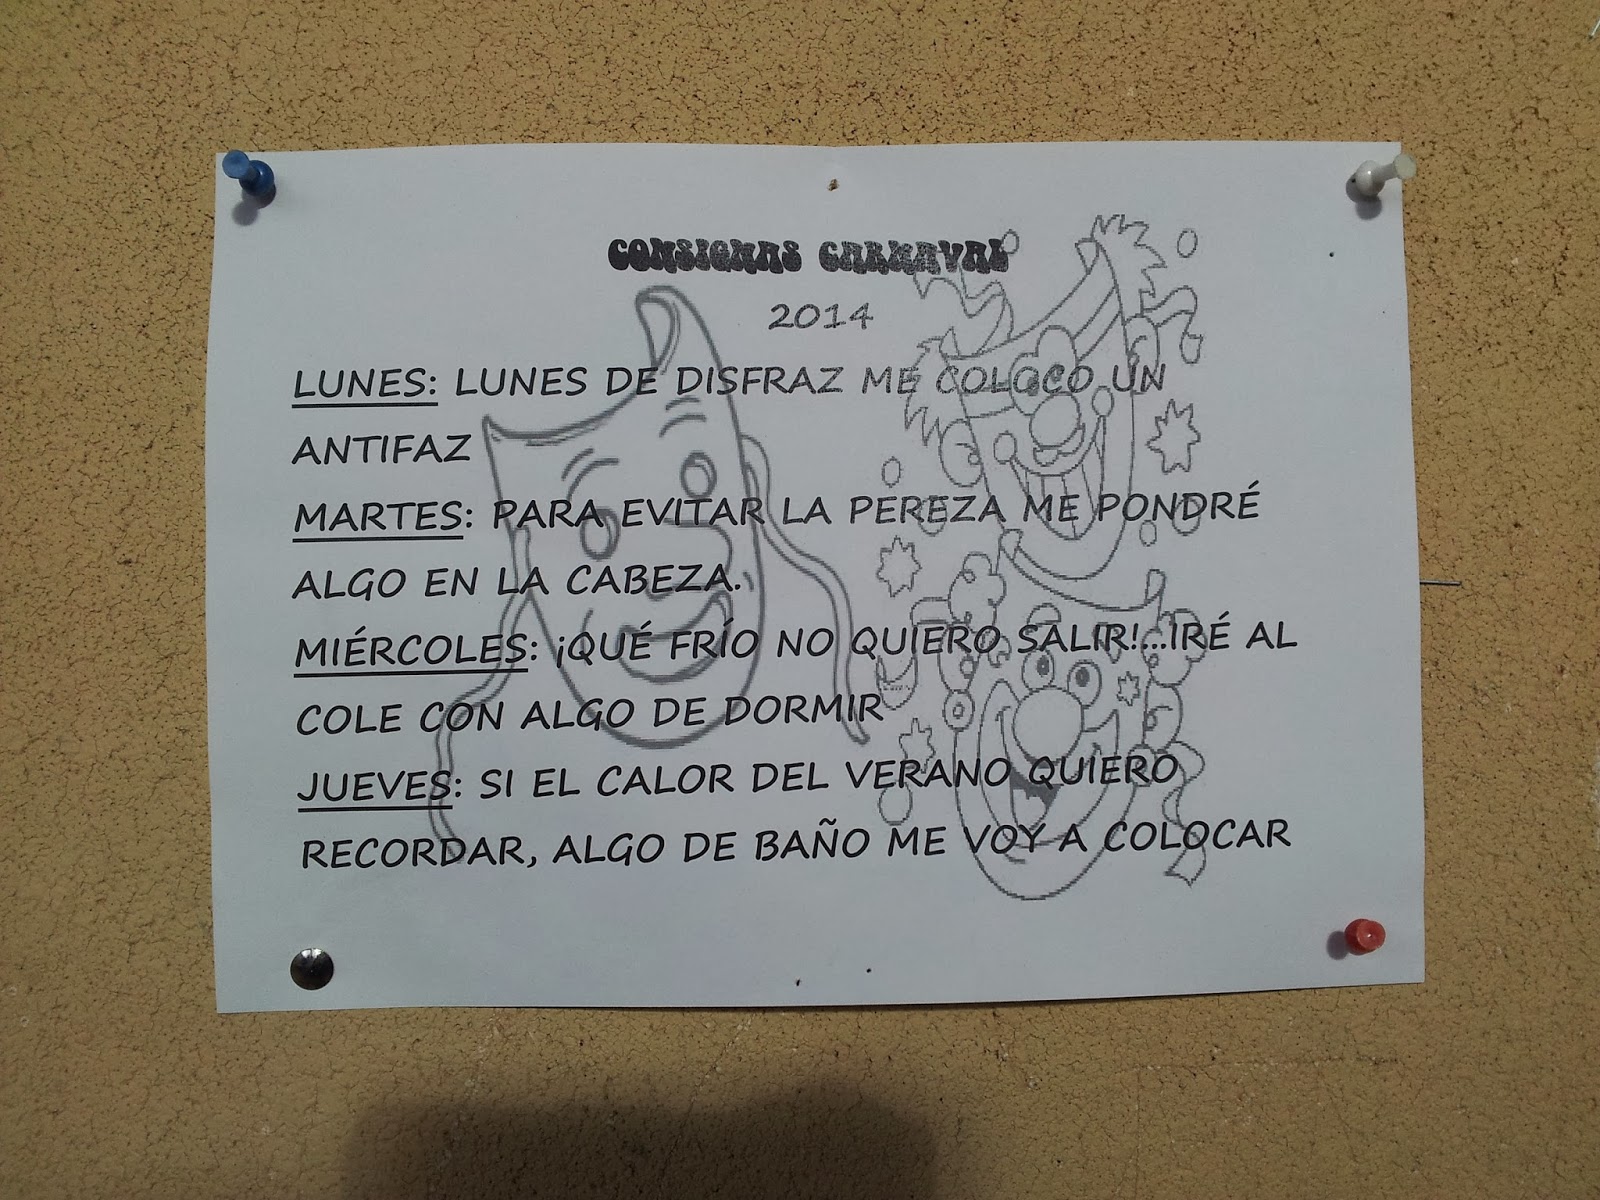 CONSIGNAS CARNAVAL
2014
LUNES: LUNES DE DISFRAZ ME COLOCO UN
ANTIFAZ
MARTES: PARA EVITAR LA PEREZA ME PONDRÉ
ALGO EN LA CABEZA.
MIÉRCOLES: ¡QUÉ FRÍO NO QUIERO SALIR!...IRÉ AL
COLE CON ALGO DE DORMIR
JUEVES: SI EL CALOR DEL VERANO QUIERO
RECORDAR, ALGO DE BAÑO ME VOY A COLOCAR